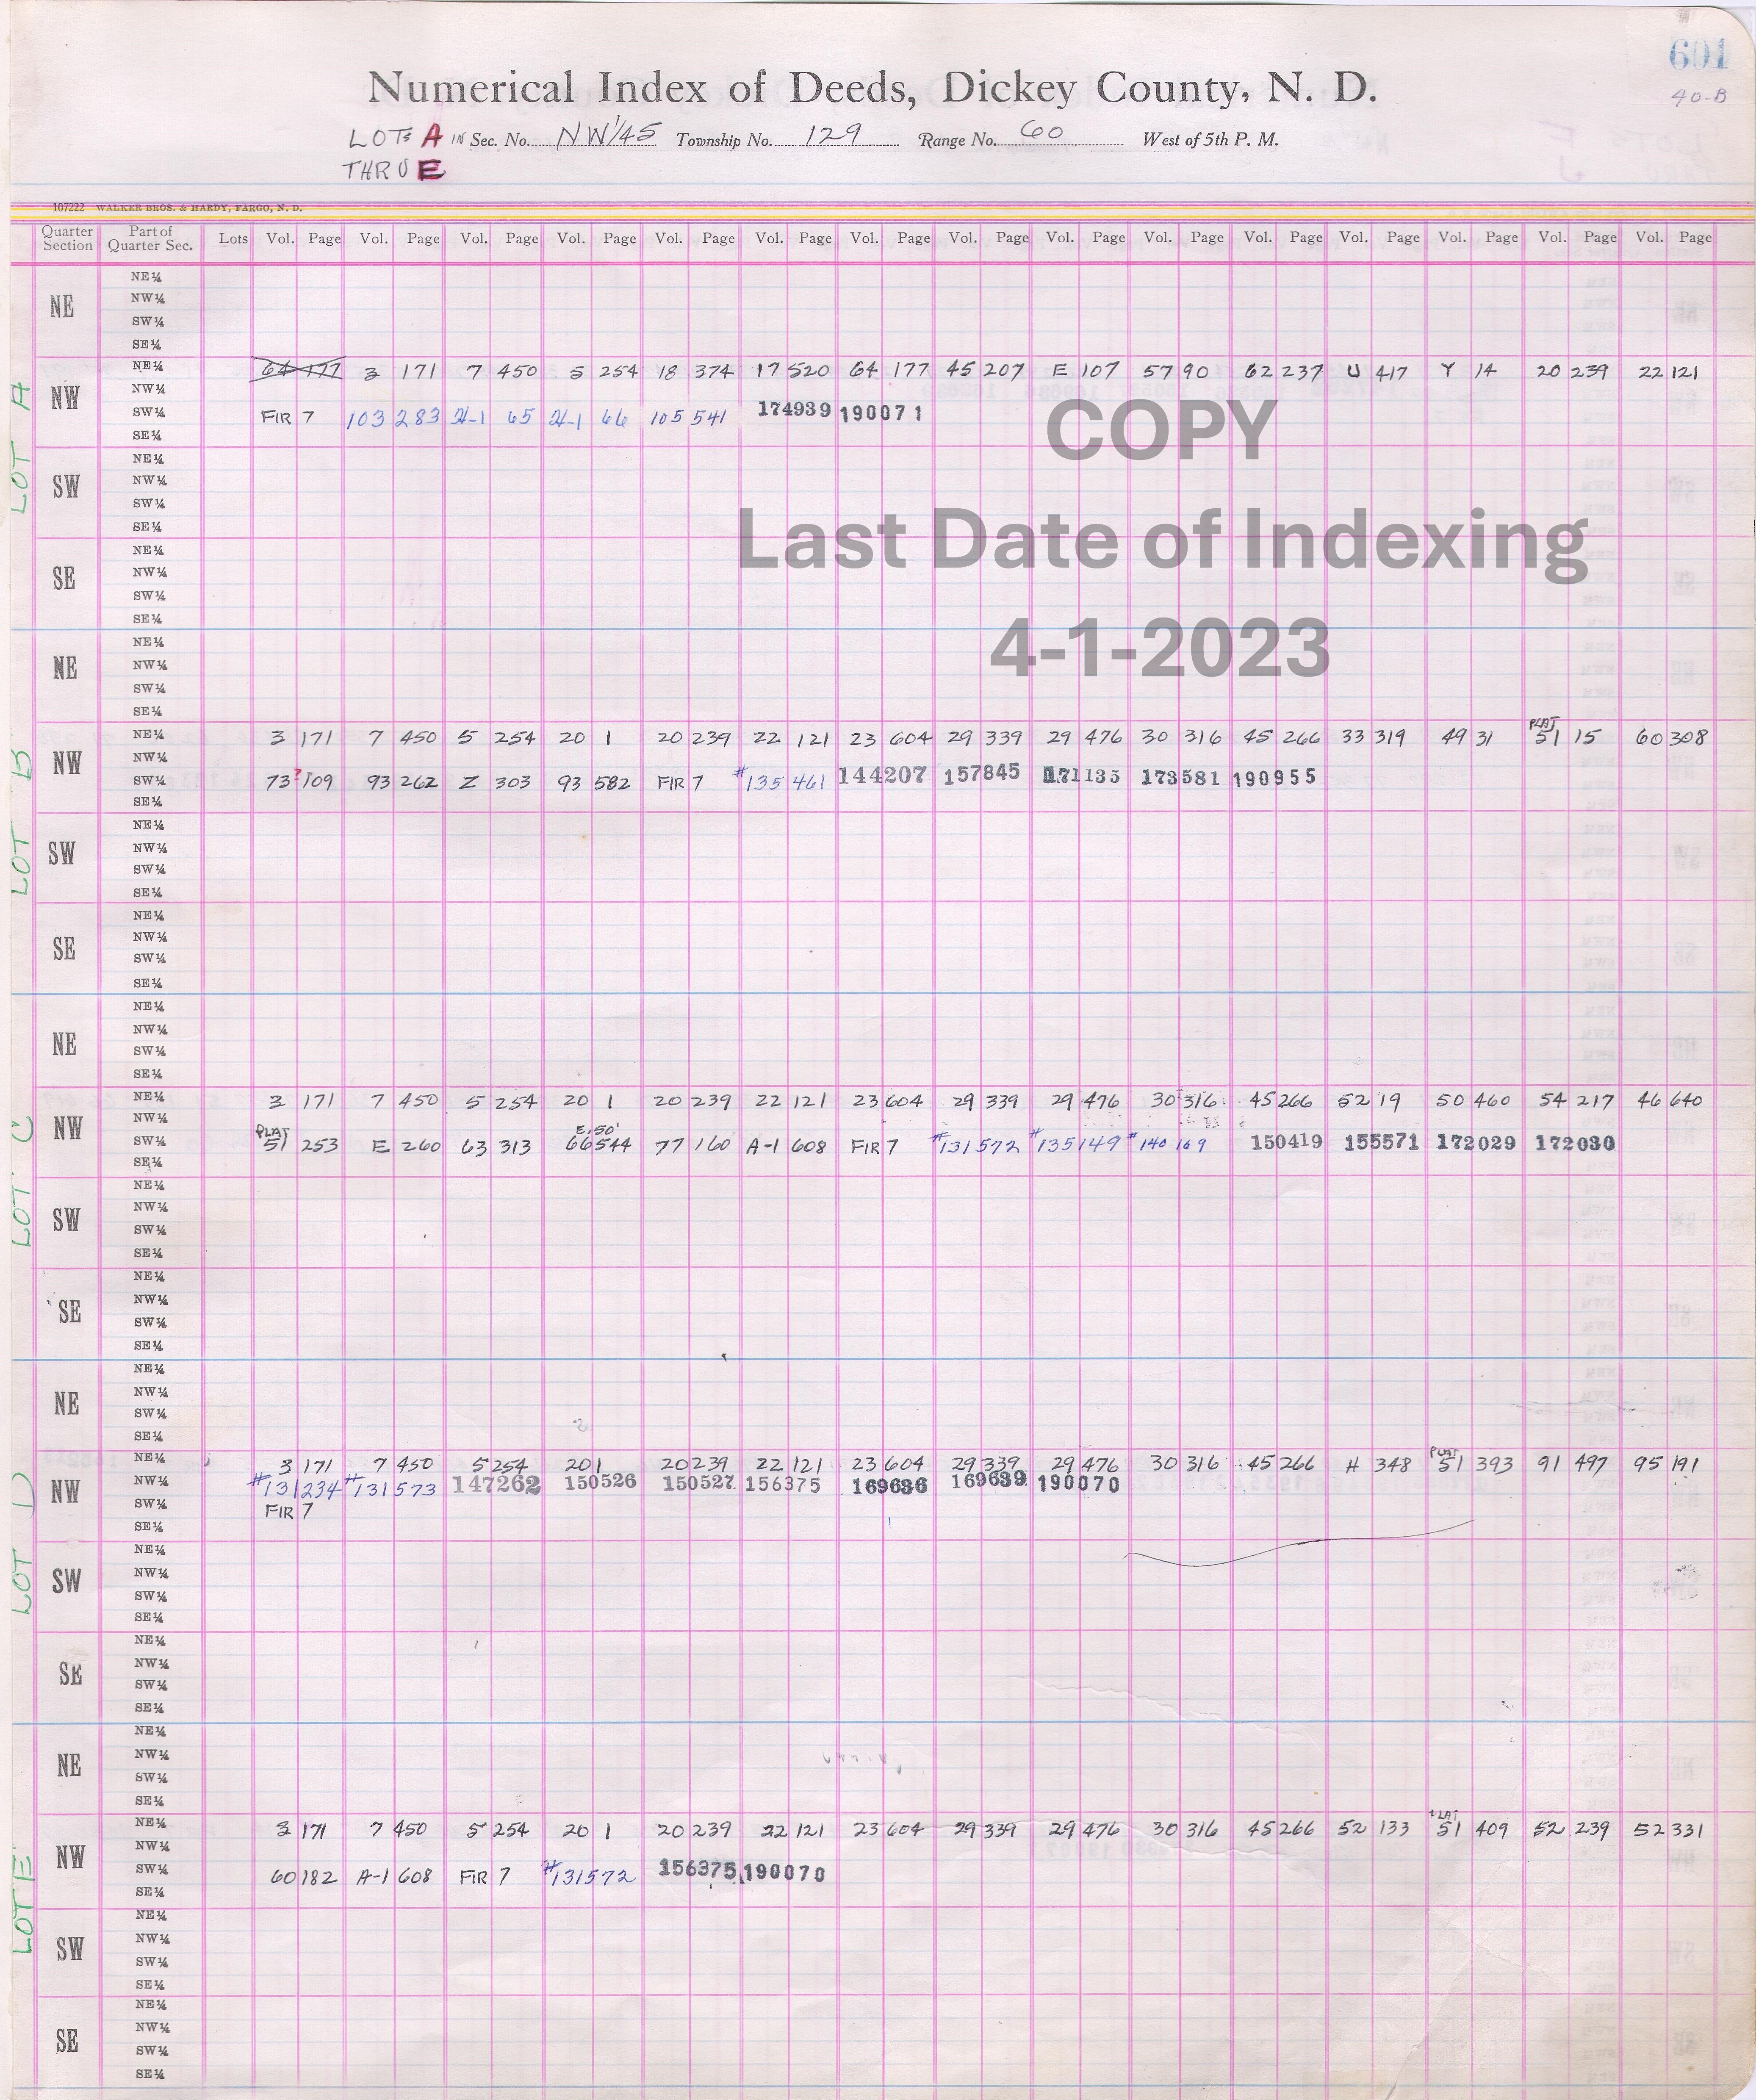 601
40-B
Numerical Index of Deeds, Dickey County, N. D.
LOTS A IN Sec. No. NW1/4 5 Township No. 129 Range No. 60 West of 5th P. M.
THRU E
107222 WALKER BROS. & HARDY, FARGO, N. D.
Quarter Section Part of Quarter Sec. Lots Vol. Page Vol. Page Vol. Page Vol. Page Vol. Page Vol. Page Vol. Page Vol. Page Vol. Page Vol. Page Vol. Page Vol. Page Vol. Page Vol. Page Vol. Page
LOT A
NE
NE¼
NW¼
SW¼
SE¼
NW
NE¼ 64 177 3 171 7 450 5 254 18 374 17 520 64 177 45 207 E 107 57 90 62 237 U 417 Y 14 20 239 22 121
NW¼
SW¼ FIR 7 103 283 H-1 65 H-1 66 105 541 174939 190071
SE¼
COPY
SW
NE¼
NW¼
SW¼
SE¼
Last Date of Indexing
SE
NE¼
NW¼
SW¼
SE¼
4-1-2023
LOT B
NE
NE¼
NW¼
SW¼
SE¼
NW
PLAT
NE¼ 3 171 7 450 5 254 20 1 20 239 22 121 23 604 29 339 29 476 30 316 45 266 33 319 49 31 51 15 60 308
NW¼
SW¼ 73 ? 109 93 262 Z 303 93 582 FIR 7 #135 461 144207 157845 171135 173581 190955
SE¼
SW
NE¼
NW¼
SW¼
SE¼
SE
NE¼
NW¼
SW¼
SE¼
LOT C
NE
NE¼
NW¼
SW¼
SE¼
NW
NE¼ 3 171 7 450 5 254 20 1 20 239 22 121 23 604 29 339 29 476 30 316 45 266 52 19 50 460 54 217 46 640
NW¼
PLAT E. 50'
SW¼ 51 253 E 260 63 313 66 544 77 160 A-1 608 FIR 7 #131572 #135149 #140 169 150419 155571 172029 172030
SE¼
SW
NE¼
NW¼
SW¼
SE¼
SE
NE¼
NW¼
SW¼
SE¼
LOT D
NE
NE¼
NW¼
SW¼
SE¼
NW
PLAT
NE¼ 3 171 7 450 5 254 20 1 20 239 22 121 23 604 29 339 29 476 30 316 45 266 H 348 51 393 91 497 95 191
NW¼ #131234 #131573 147262 150526 150527 156375 169636 169639 190070
SW¼ FIR 7
SE¼
SW
NE¼
NW¼
SW¼
SE¼
SE
NE¼
NW¼
SW¼
SE¼
LOT E
NE
NE¼
NW¼
SW¼
SE¼
NW
PLAT
NE¼ 3 171 7 450 5 254 20 1 20 239 22 121 23 604 29 339 29 476 30 316 45 266 52 133 51 409 52 239 52 331
NW¼
SW¼ 60 182 A-1 608 FIR 7 #131572 156375 190070
SE¼
SW
NE¼
NW¼
SW¼
SE¼
SE
NE¼
NW¼
SW¼
SE¼